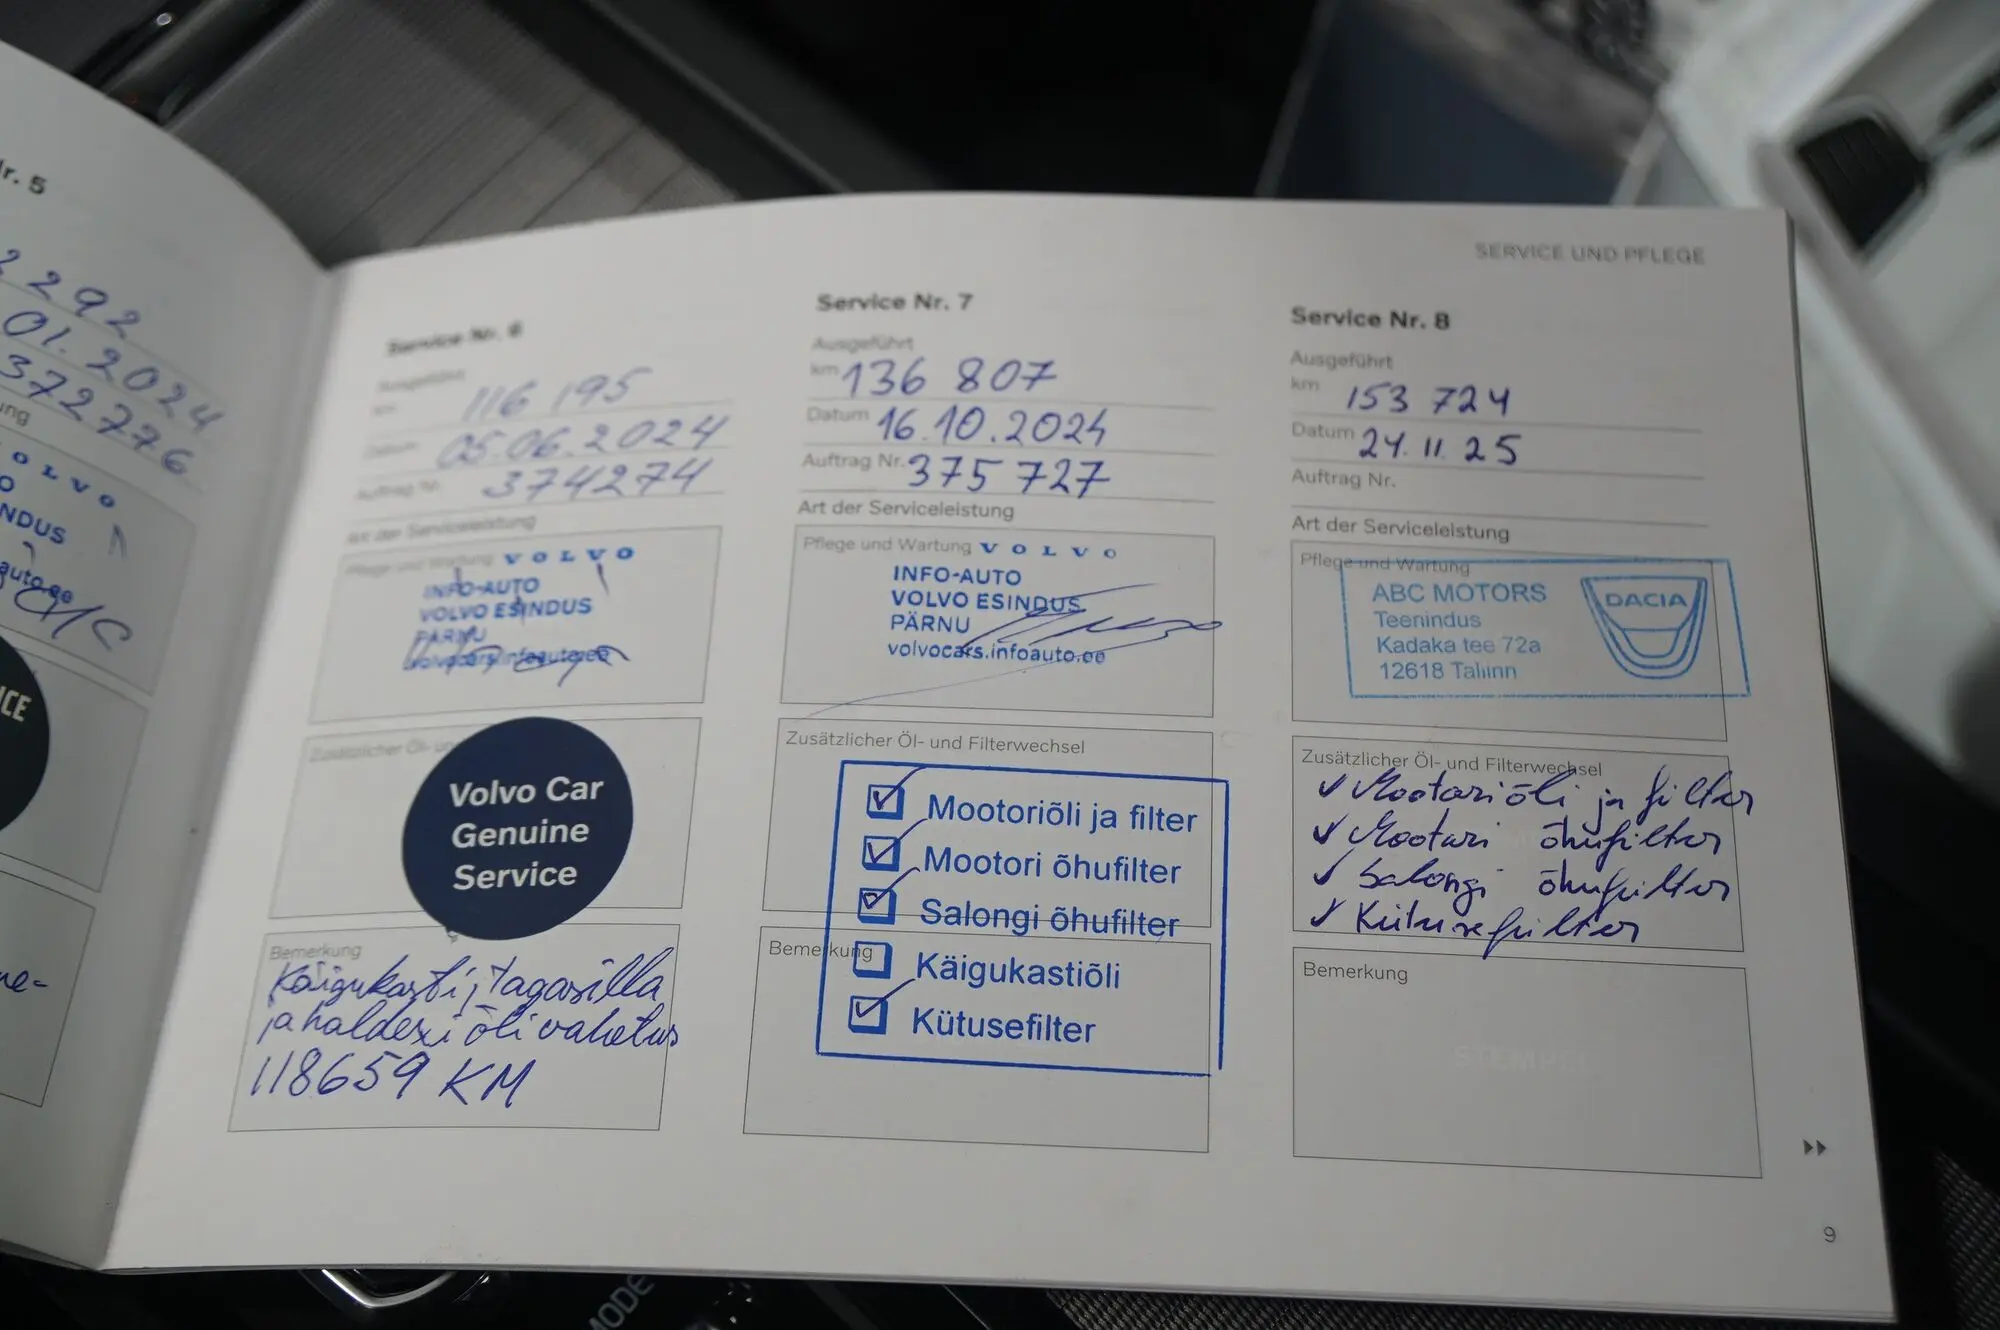 Nr. 5
292
01.2024
372776
VOLVO
CE
SERVICE UND PFLEGE
Service Nr. 6
Ausgeführt
km 116 195
Datum 05.06.2024
Auftrag Nr. 374274
Art der Serviceleistung
Pflege und Wartung VOLVO
INFO-AUTO
VOLVO ESINDUS
PÄRNU
volvocars.infoauto.ee
Zusätzlicher Öl-
Volvo Car
Genuine
Service
Bemerkung
Käigukasti, Tagasilla
ja haldexi õlivahetus
118659 KM
Service Nr. 7
Ausgeführt
km 136 807
Datum 16.10.2024
Auftrag Nr. 375 727
Art der Serviceleistung
Pflege und Wartung VOLVO
INFO-AUTO
VOLVO ESINDUS
PÄRNU
volvocars.infoauto.ee
Zusätzlicher Öl- und Filterwechsel
Mootoriõli ja filter
Mootori õhufilter
Salongi õhufilter
Bemerkung
Käigukastiõli
Kütusefilter
Service Nr. 8
Ausgeführt
km 153 724
Datum 24.11.25
Auftrag Nr.
Art der Serviceleistung
Pflege und Wartung
ABC MOTORS
Teenindus
Kadaka tee 72a
12618 Tallinn
DACIA
Zusätzlicher Öl- und Filterwechsel
✓ Mootoriõli ja filter
✓ Mootori õhufilter
✓ Salongi õhufilter
✓ Kütusefilter
Bemerkung
9
MODE